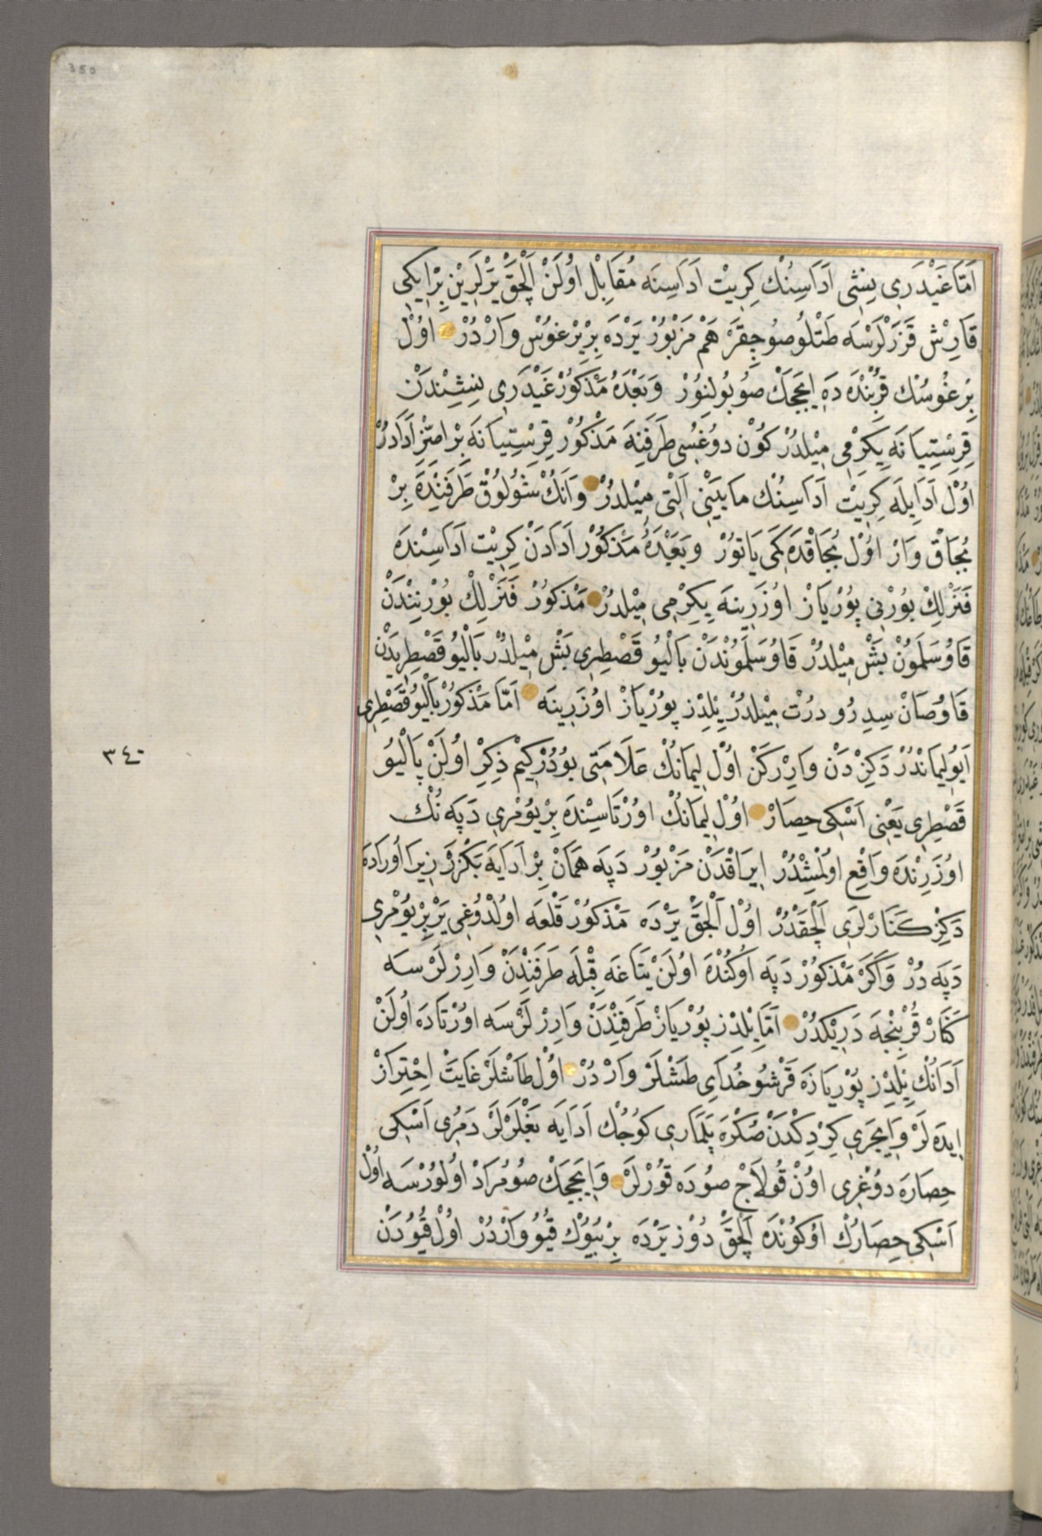 350
اَمَّا غَيْدَرِى نِسْتِى اَدَاسِنُكْ كِرِيتْ اَدَاسِنَه مُقَابِلْ اُولَنْ اَلْچَقْ يَرْلَرِينْ بِرْ اِيكِى
قَارِشْ قَزَرْلَرْسَه طَتْلُو صُو چِقَرْ هَمْ مَزْبُورْ يَرْدَه بِرْ بِرْغُوسْ وَارْدُرْ اُولْ
بِرْغُوسُكْ قُرْبُنْدَه دَه اِيچَجَكْ صُو بُولِنُورْ وَبَعْدَهُ مَذْكُورْ غَيْدَرِى نِسْتِسِنْدَنْ
قِرِسْتِيَانَه يِكِرْمِى مِيلْدُرْ كُونْ دُوغُسِى طَرَفِنَه مَذْكُورْ قِرِسْتِيَانَه بِرْ اِصْسِزْ اَدَادُرْ
اُولْ اَدَايِلَه كِرِيتْ اَدَاسِنُكْ مَابَيْنِى اَلْتِى مِيلْدُرْ وَانُكْ شُولُوقْ طَرَفِنْدَه بِرْ
بُجَاقْ وَارْ اُولْ بُجَاقْدَه كَمِى يَاتُورْ وَبَعْدَهُ مَذْكُورْ اَدَادَنْ كِرِيتْ اَدَاسِنْدَه
فَنَرْلِكْ بُورْنِى پُورْيَازْ اُوزَرِينَه يِكِرْمِى مِيلْدُرْ مَذْكُورْ فَنَرْلِكْ بُورْنِنْدَنْ
قَاوُسَلَمُونْ بَشْ مِيلْدُرْ قَاوُسَلَمُونْدَنْ پَالْيُو قَصْطِرِى بَشْ مِيلْدُرْ پَالْيُو قَصْطِرِيدَنْ
قَاوُصَانْ سِدِرُو دُرْتْ مِيلْدُرْ يِلْدِزْ پُورْيَازْ اُوزَرِينَه اَمَّا مَذْكُورْ پَالْيُو قَصْطِرِى
اَيُو لِيمَانْدُرْ دَكِزْدَنْ وَارِرْكَنْ اُولْ لِيمَانُكْ عَلَامَتِى بُودُرْكِيمْ ذِكِرْ اُولَنْ پَالْيُو
٣٤٠
قَصْطِرِى يَعْنِى اَسْكِى حِصَارْ اُولْ لِيمَانُكْ اُورْتَاسِنْدَه بِرْ يُومْرِى دَپَه نُكْ
اُوزَرِنْدَه وَاقِعْ اُولْمِشْدُرْ اِيرَاقْدَنْ مَزْبُورْ دَپَه هَمَانْ بِرْ اَدَايَه بَكْزَرْ زِيرَا اُورَادَه
دَكِزْ كَنَارْلَرِى اَلْچَقْدُرْ اُولْ اَلْچَقْ يَرْدَه مَذْكُورْ قَلْعَه اُولْدُوغِى يَرْ بِرْ يُومْرِى
دَپَه دُرْ وَاكَرْ مَذْكُورْ دَپَه اُوكُنْدَه اُولَنْ يَتَاغَه قِبْلَه طَرَفِنْدَنْ وَارِرْلَرْسَه
كَنَارْ قُرْبِنْجَه دَرِيكْدُرْ اَمَّا يِلْدِزْ پُورْيَازْ طَرَفِنْدَنْ وَارِرْلَرْسَه اُورْتَادَه اُولَنْ
اَدَانُكْ يِلْدِزْ پُورْيَازَه قَرْشُو خُدَاىِ طَشْلَرْ وَارْدُرْ اُولْ طَاشْلَرْ غَايَتْ اِحْتِرَازْ
اِيدَه لَرْ وَاِيچَرِى كِرْدِكْدَنْ صُكْرَه پَلَمَارِى كُوجُكْ اَدَايَه بَغْلَرْلَرْ دَمُرِى اَسْكِى
حِصَارَه دُوغْرِى اُونْ قُولَاجْ صُودَه قُورْلَرْ وَاِيچَجَكْ صُو مُرَادْ اُولُورْسَه اُولْ
اَسْكِى حِصَارُكْ اُوكُونْدَه اَلْچَقْ دُوزْ يَرْدَه بِرْ بُيُوكْ قُيُو وَارْدُرْ اُولْ قُيُودَنْ